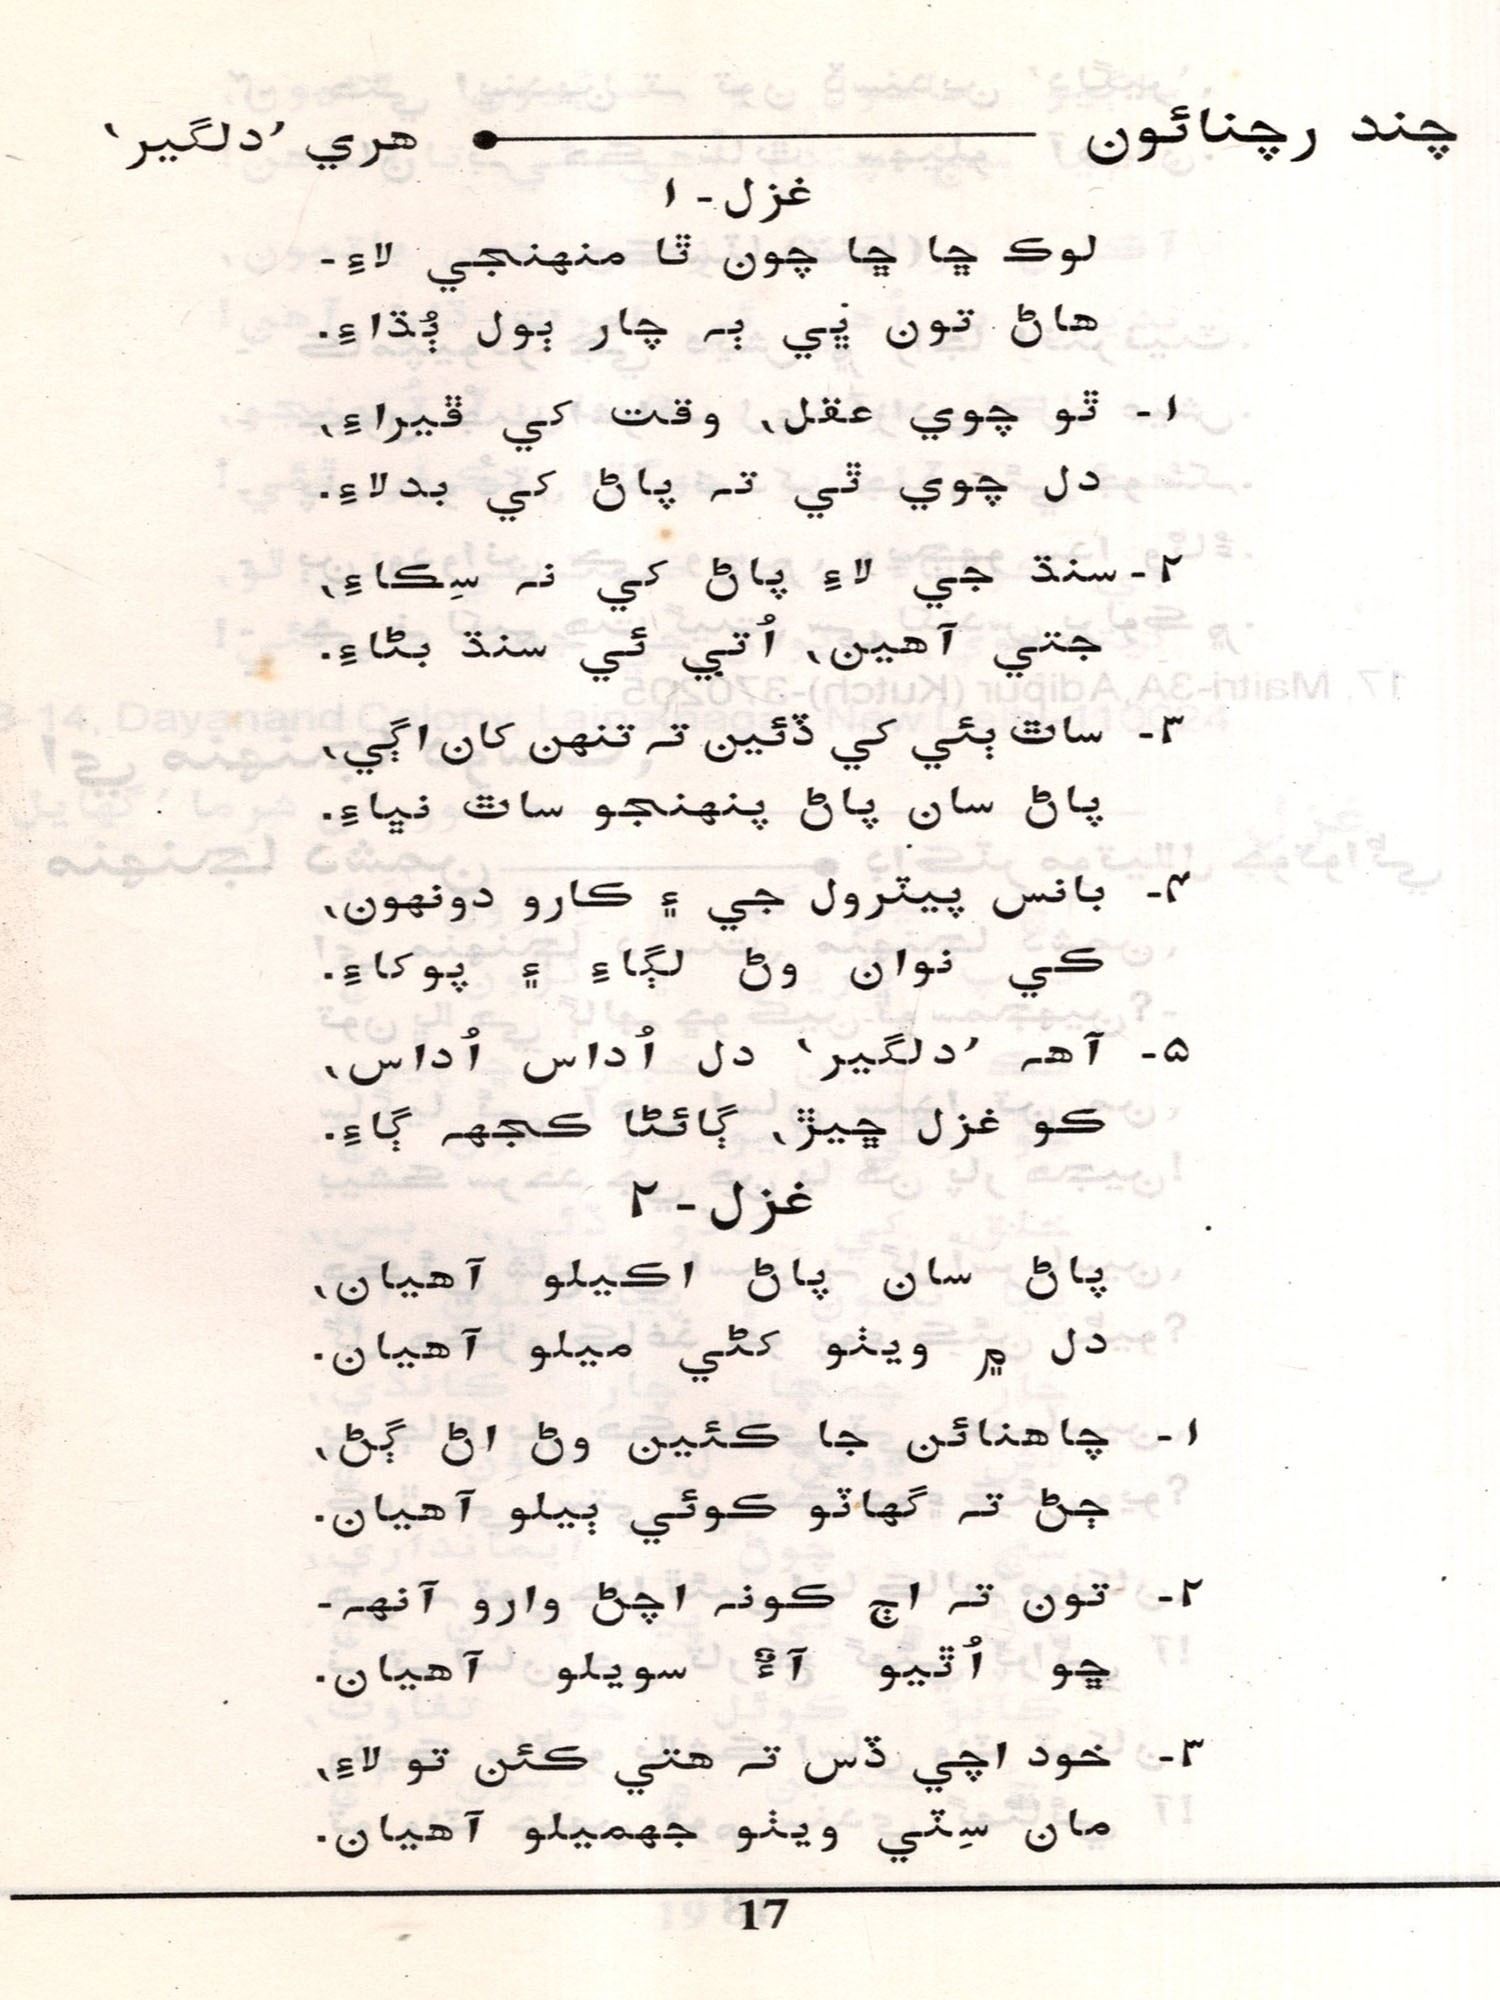 چند رچنائون ————● هري ’دلگير‘
غزل - ۱
لوڪ ڇا ڇا چون ٿا منهنجي لاءِ-
هاڻ تون ڀي ٻہ چار ٻول ٻُڌاءِ.
۱- ٿو چوي عقل، وقت کي ڦيراءِ،
دل چوي ٿي تہ پاڻ کي بدلاءِ.
۲- سنڌ جي لاءِ پاڻ کي نہ سِڪاءِ،
جتي آهين، اُتي ئي سنڌ بڻاءِ.
۳- ساٿ ٻئي کي ڏئين تہ تنهن کان اڳي،
پاڻ سان پاڻ پنهنجو ساٿ نڀاءِ.
۴- بانس پيٽرول جي ۽ ڪارو دونهون،
ڪي نوان وڻ لڳاءِ ۽ پوکاءِ.
۵- آهہ ’دلگير‘ دل اُداس اُداس،
ڪو غزل ڇيڙ، ڳائڻا ڪجهہ ڳاءِ.
غزل - ۲
پاڻ سان پاڻ اڪيلو آهيان،
دل ۾ ويٺو کڻي ميلو آهيان.
۱- چاهنائن جا ڪئين وڻ اڻ ڳڻ،
ڄڻ تہ گهاٽو ڪوئي ٻيلو آهيان.
۲- تون تہ اڄ ڪونہ اچڻ وارو آنهہ-
ڇو اُٿيو آءٌ سويلو آهيان.
۳- خود اچي ڏس تہ هتي ڪئن تو لاءِ،
مان سِٽي ويٺو جهميلو آهيان.
17